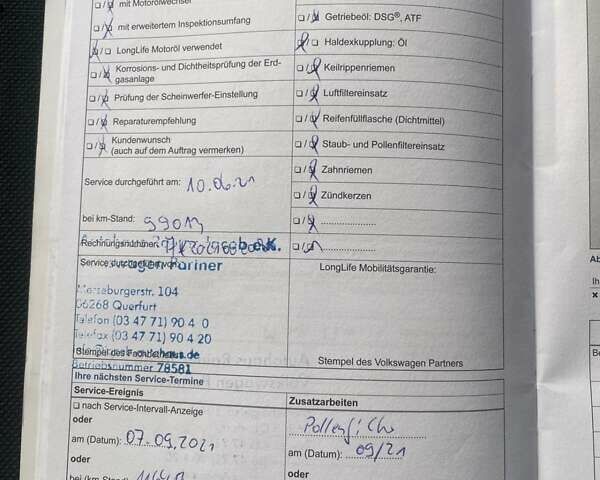 mit Motorölwechsel
mit erweitertem Inspektionsumfang
LongLife Motoröl verwendet
Korrosions- und Dichtheitsprüfung der Erd-
gasanlage
Prüfung der Scheinwerfer-Einstellung
Reparaturempfehlung
Kundenwunsch
(auch auf dem Auftrag vermerken)
Service durchgeführt am: 10.06.21
bei km-Stand: 99013
Rechnungsnummer:
b e.K.
Service durchgeführt von:
Partner
Merseburgerstr. 104
06268 Querfurt
Telefon (03 47 71) 90 4 0
Telefax (03 47 71) 90 4 20
Stempel des
Betriebsnummer 78581
Getriebeöl: DSG®, ATF
Haldexkupplung: Öl
Keilrippenriemen
Luftfiltereinsatz
Reifenfüllflasche (Dichtmittel)
Staub- und Pollenfiltereinsatz
Zahnriemen
Zündkerzen
LongLife Mobilitätsgarantie:
Stempel des Volkswagen Partners
Ihre nächsten Service-Termine
Service-Ereignis
nach Service-Intervall-Anzeige
oder
am (Datum): 07.09.2021
oder
bei (km-Stand):
Zusatzarbeiten
am (Datum): 09/21
oder